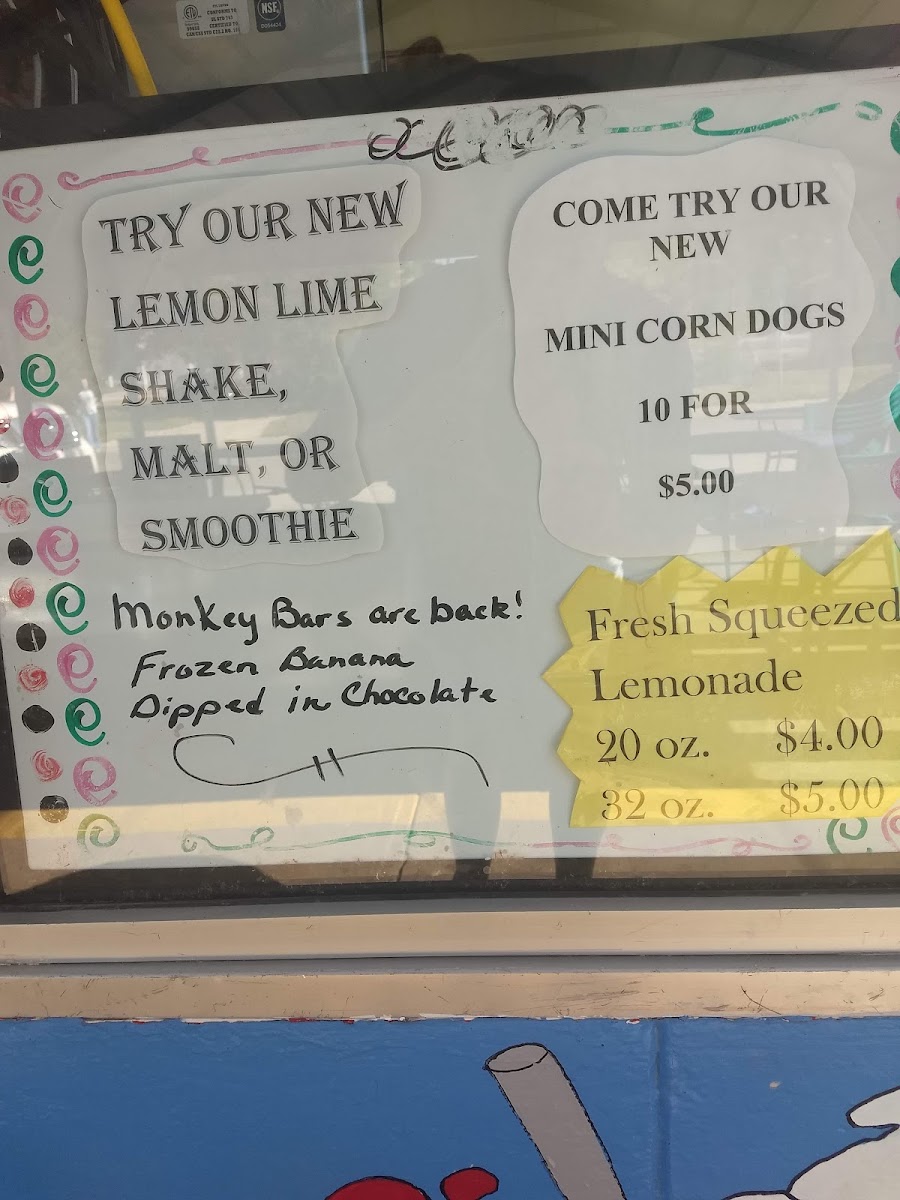 NSF
TRY OUR NEW
LEMON LIME
SHAKE,
MALT, OR
SMOOTHIE
COME TRY OUR
NEW
MINI CORN DOGS
10 FOR
$5.00
Monkey Bars are back!
Frozen Banana
Dipped in Chocolate
Fresh Squeezed
Lemonade
20 oz. $4.00
32 oz. $5.00